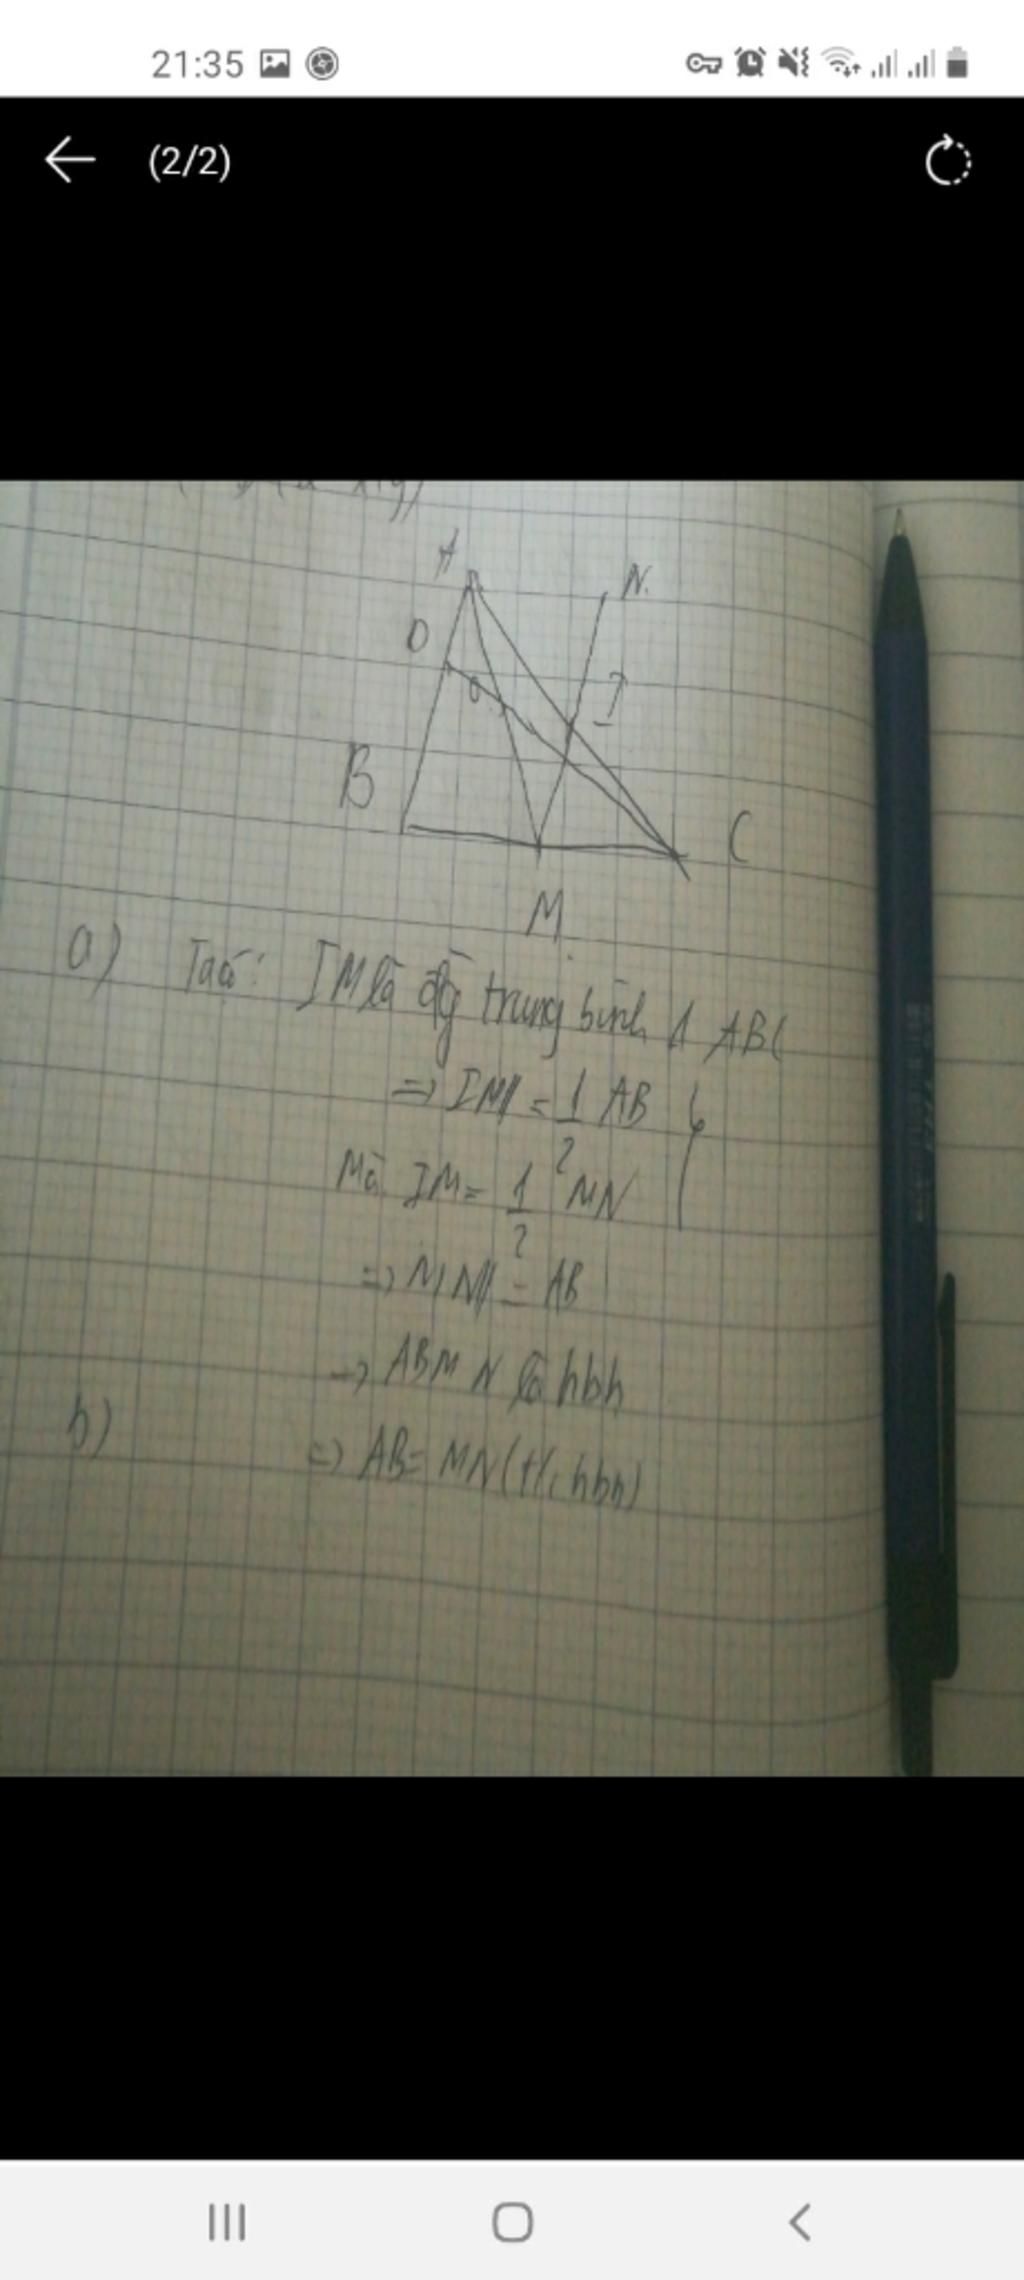 21:35
(2/2)
A
N.
D
I
B
C
M
a) Ta có: IM là đg trung bình Δ ABC
=> IM // = 1/2 AB
Mà IM = 1/2 MN
=> MN // = AB
-> ABMN là hbh
b) => AB = MN (t/c hbh)